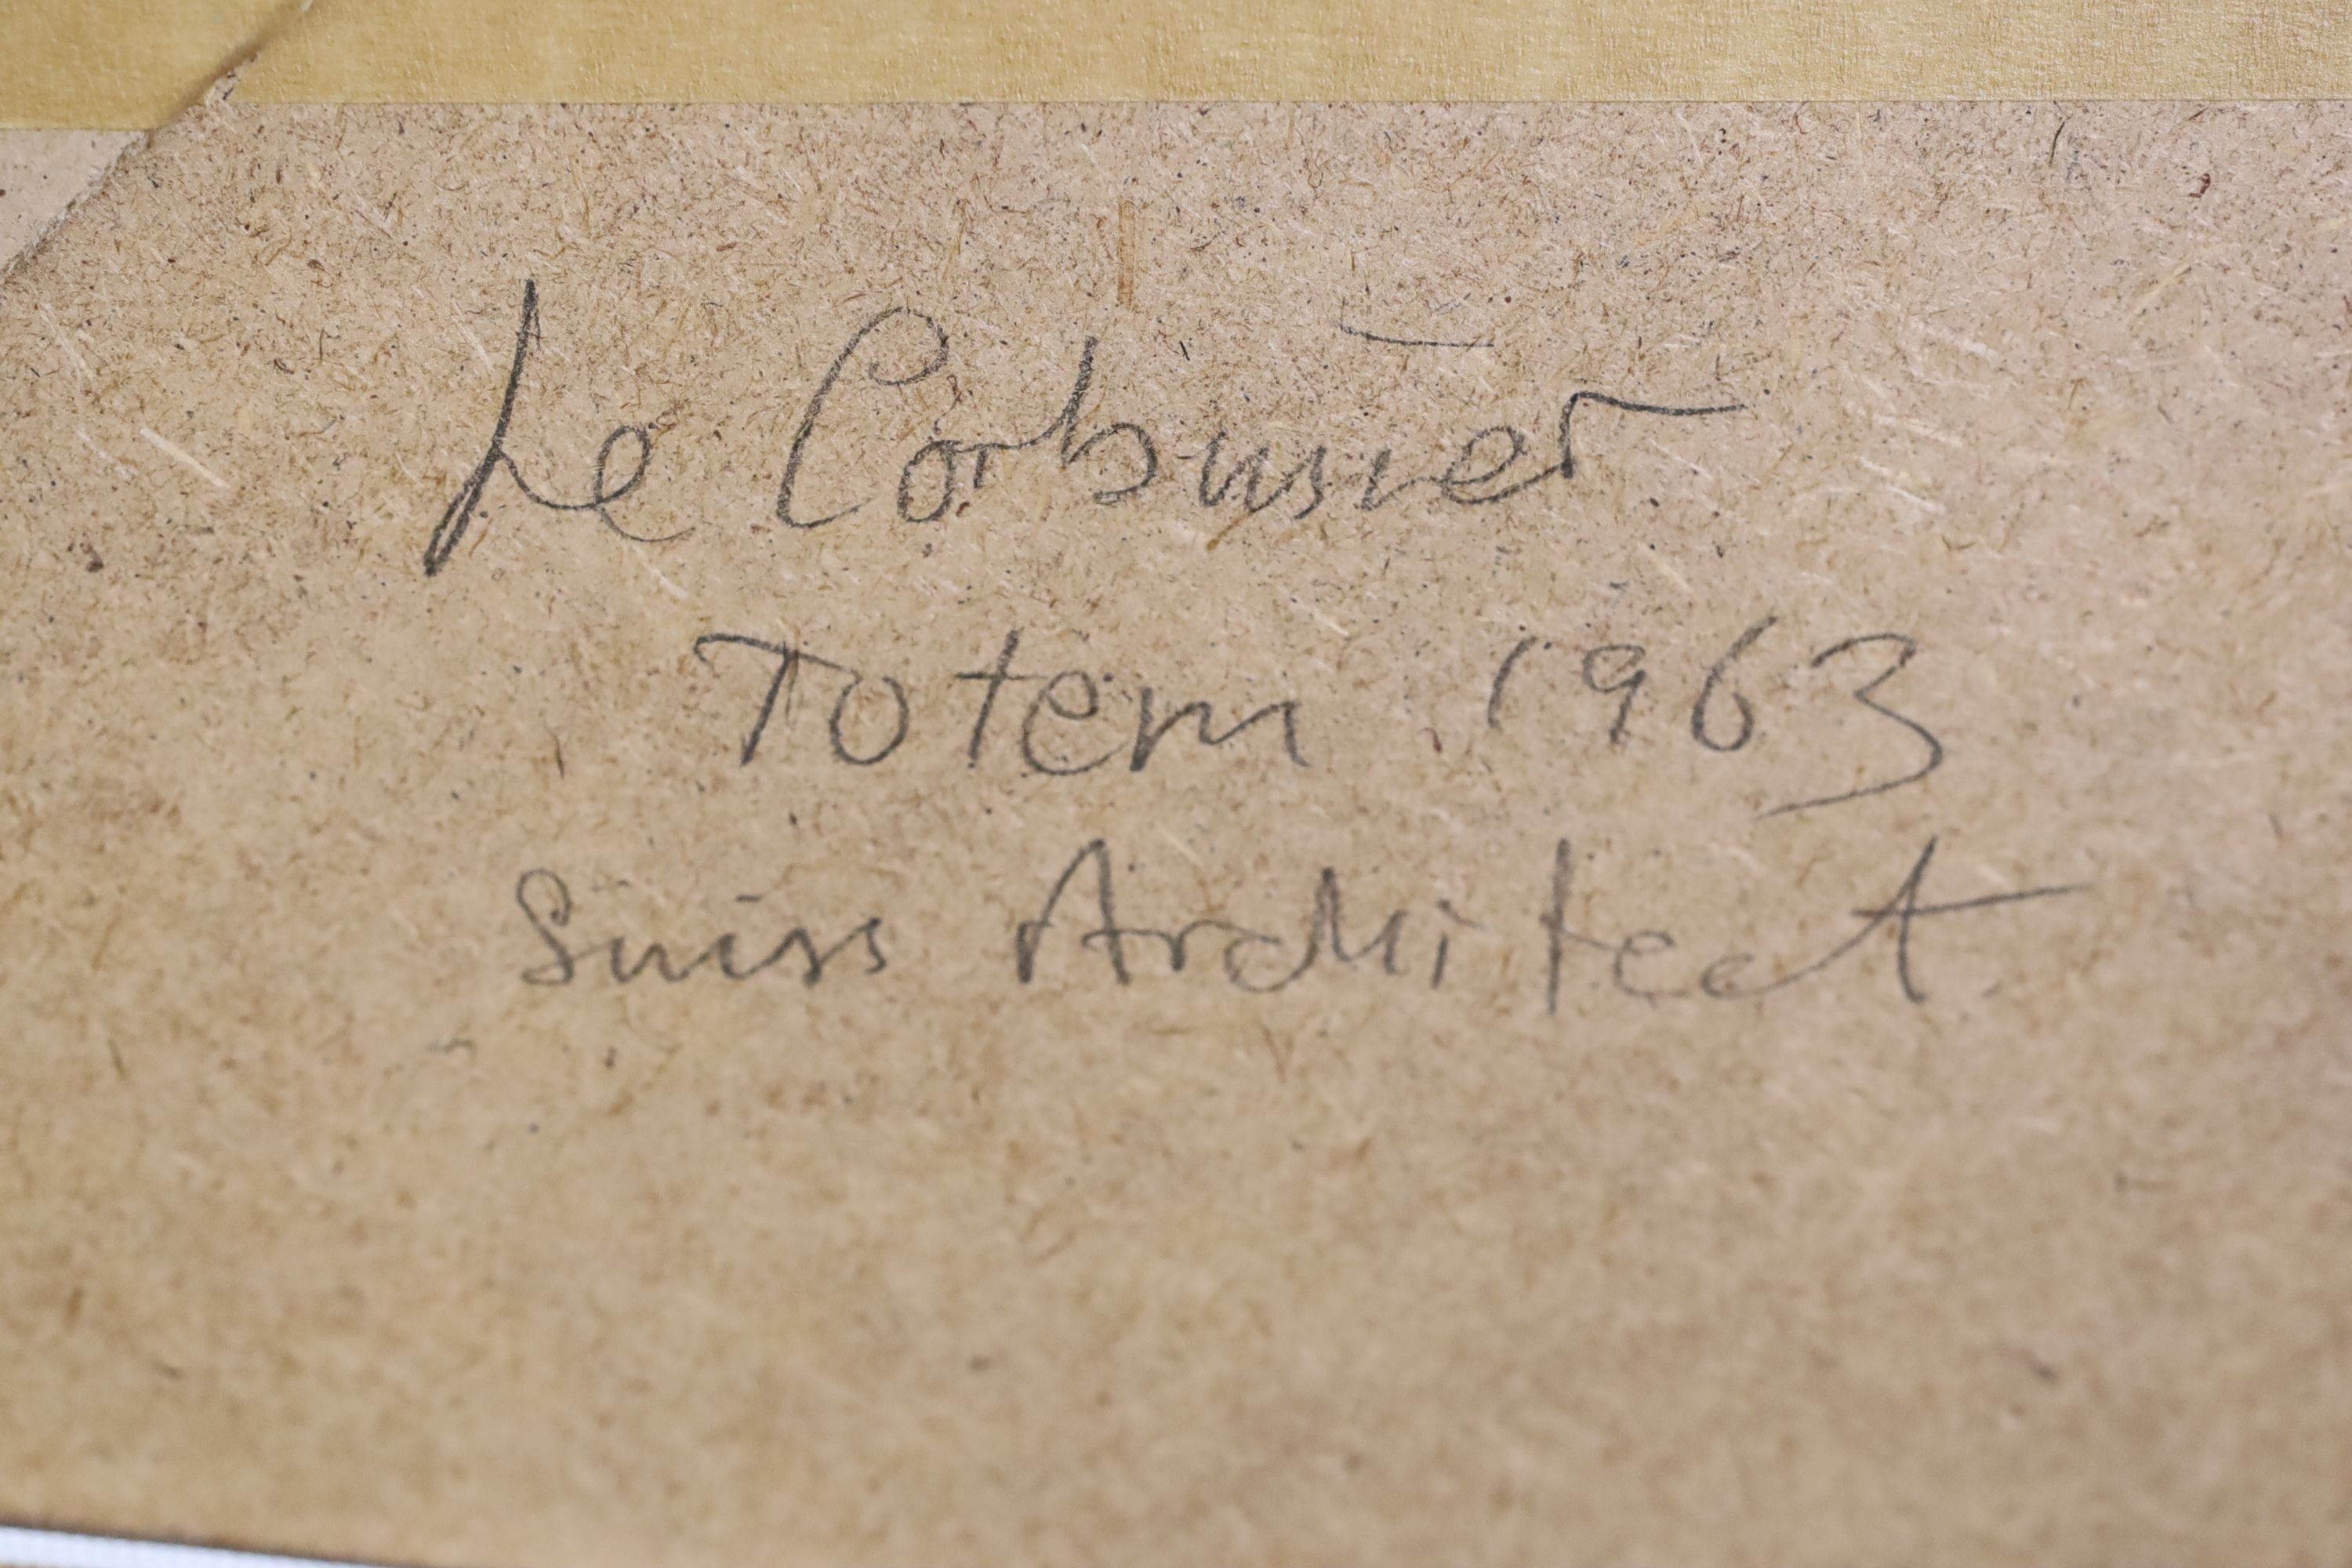 Le Corbusier
Totem 1963
Suiss Architect